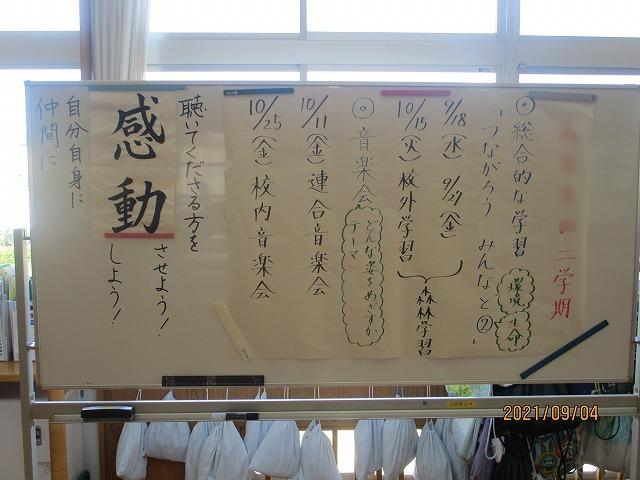 の二学期
◎総合的な学習
「つながろう みんなと②」
環境
生命
9/18(水) 9/27(金)
10/15(火)校外学習
森林学習
◎音楽会
どんな姿をめざすか
テーマ
10/11(金)連合音楽会
10/25(金)校内音楽会
聴いてくださる方を
感動
させよう!
しよう!
自分自身に
仲間に
2021/09/04